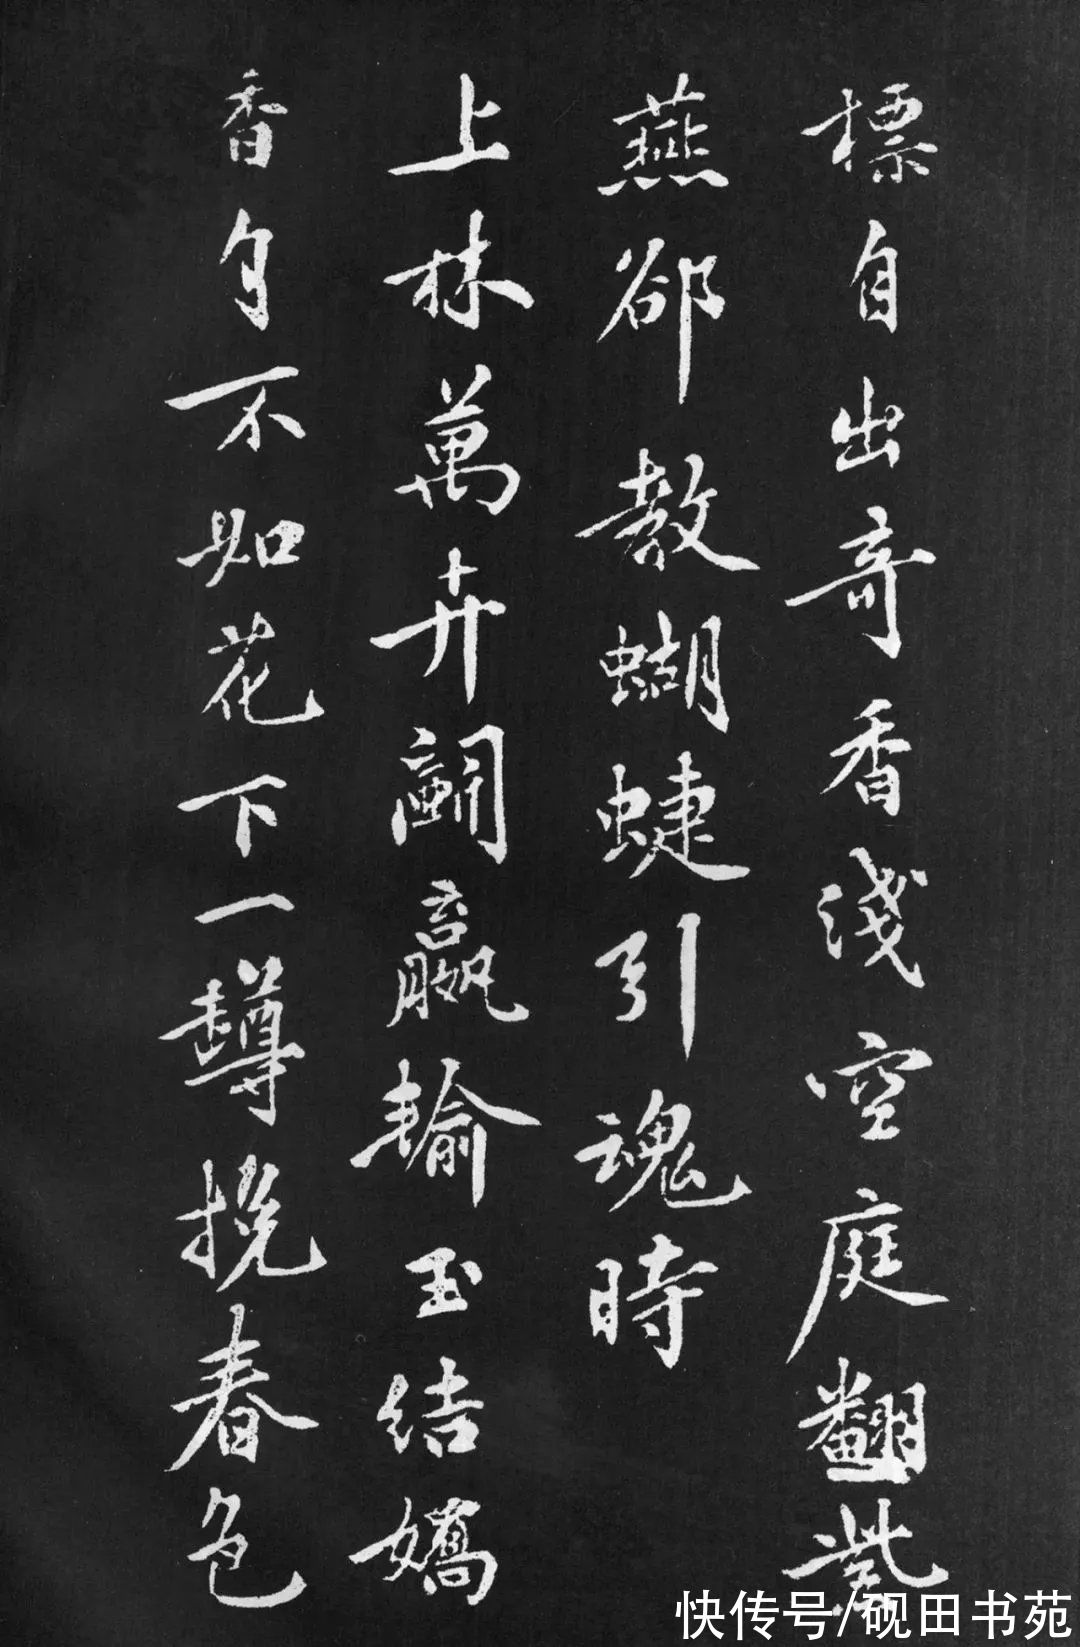 標自出奇香淺空庭翻紫
燕卻教蝴蜨引魂時
上林萬卉鬭嬴輸玉結嬌
香自不如花下一罇挽春色
快传号/砚田书苑